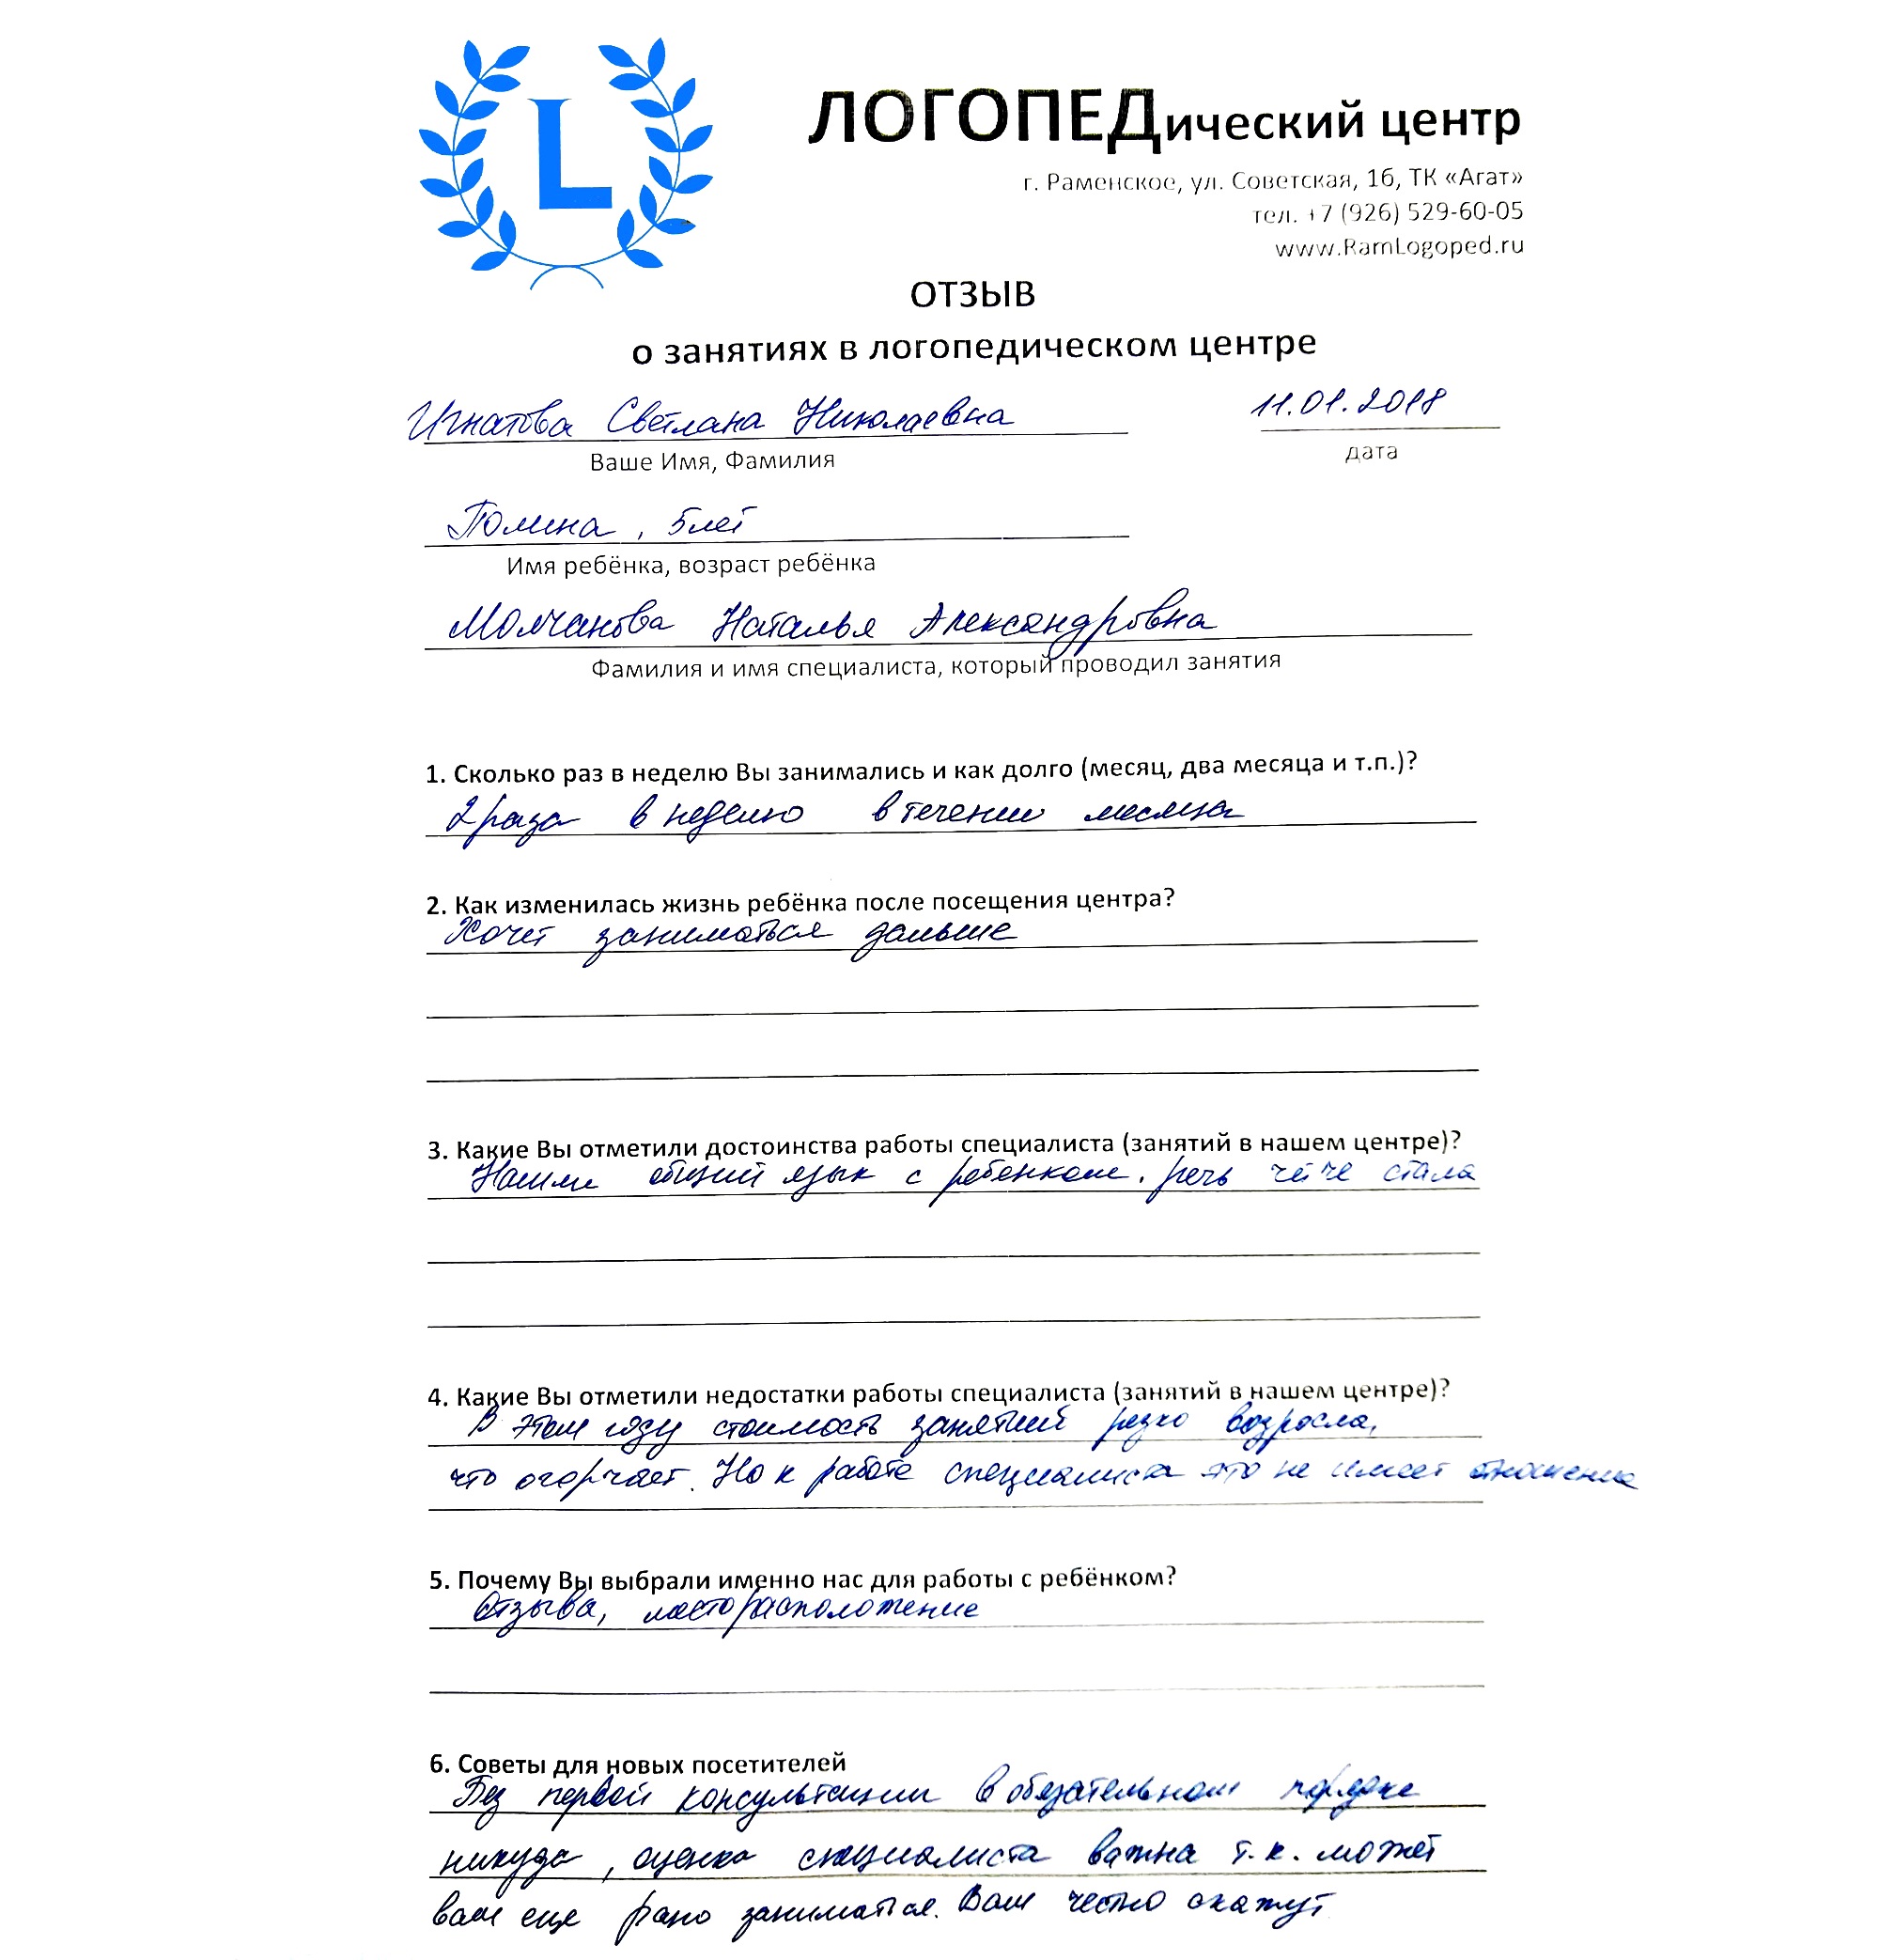 L
ЛОГОПЕДический центр
г. Раменское, ул. Советская, 16, ТК «Агат»
тел. +7 (926) 529-60-05
www.RamLogoped.ru
ОТЗЫВ
о занятиях в логопедическом центре
Игнатова Светлана Николаевна 11.01.2018
Ваше Имя, Фамилия дата
Полина, 5 лет
Имя ребёнка, возраст ребёнка
Молчанова Наталья Александровна
Фамилия и имя специалиста, который проводил занятия
1. Сколько раз в неделю Вы занимались и как долго (месяц, два месяца и т.п.)?
2 раза в неделю в течении месяца
2. Как изменилась жизнь ребёнка после посещения центра?
Хочет заниматься дальше
3. Какие Вы отметили достоинства работы специалиста (занятий в нашем центре)?
Нашли общий язык с ребенком. речь стала
4. Какие Вы отметили недостатки работы специалиста (занятий в нашем центре)?
В этом году стоимость занятий резко возросла,
что огорчает. Но к работе специалиста это не имеет отношение
5. Почему Вы выбрали именно нас для работы с ребёнком?
Отзывы, месторасположение
6. Советы для новых посетителей
Без первой консультации в обязательном порядке
никуда, оценка специалиста важна т.к. может
вам еще рано заниматься. Вам честно скажут